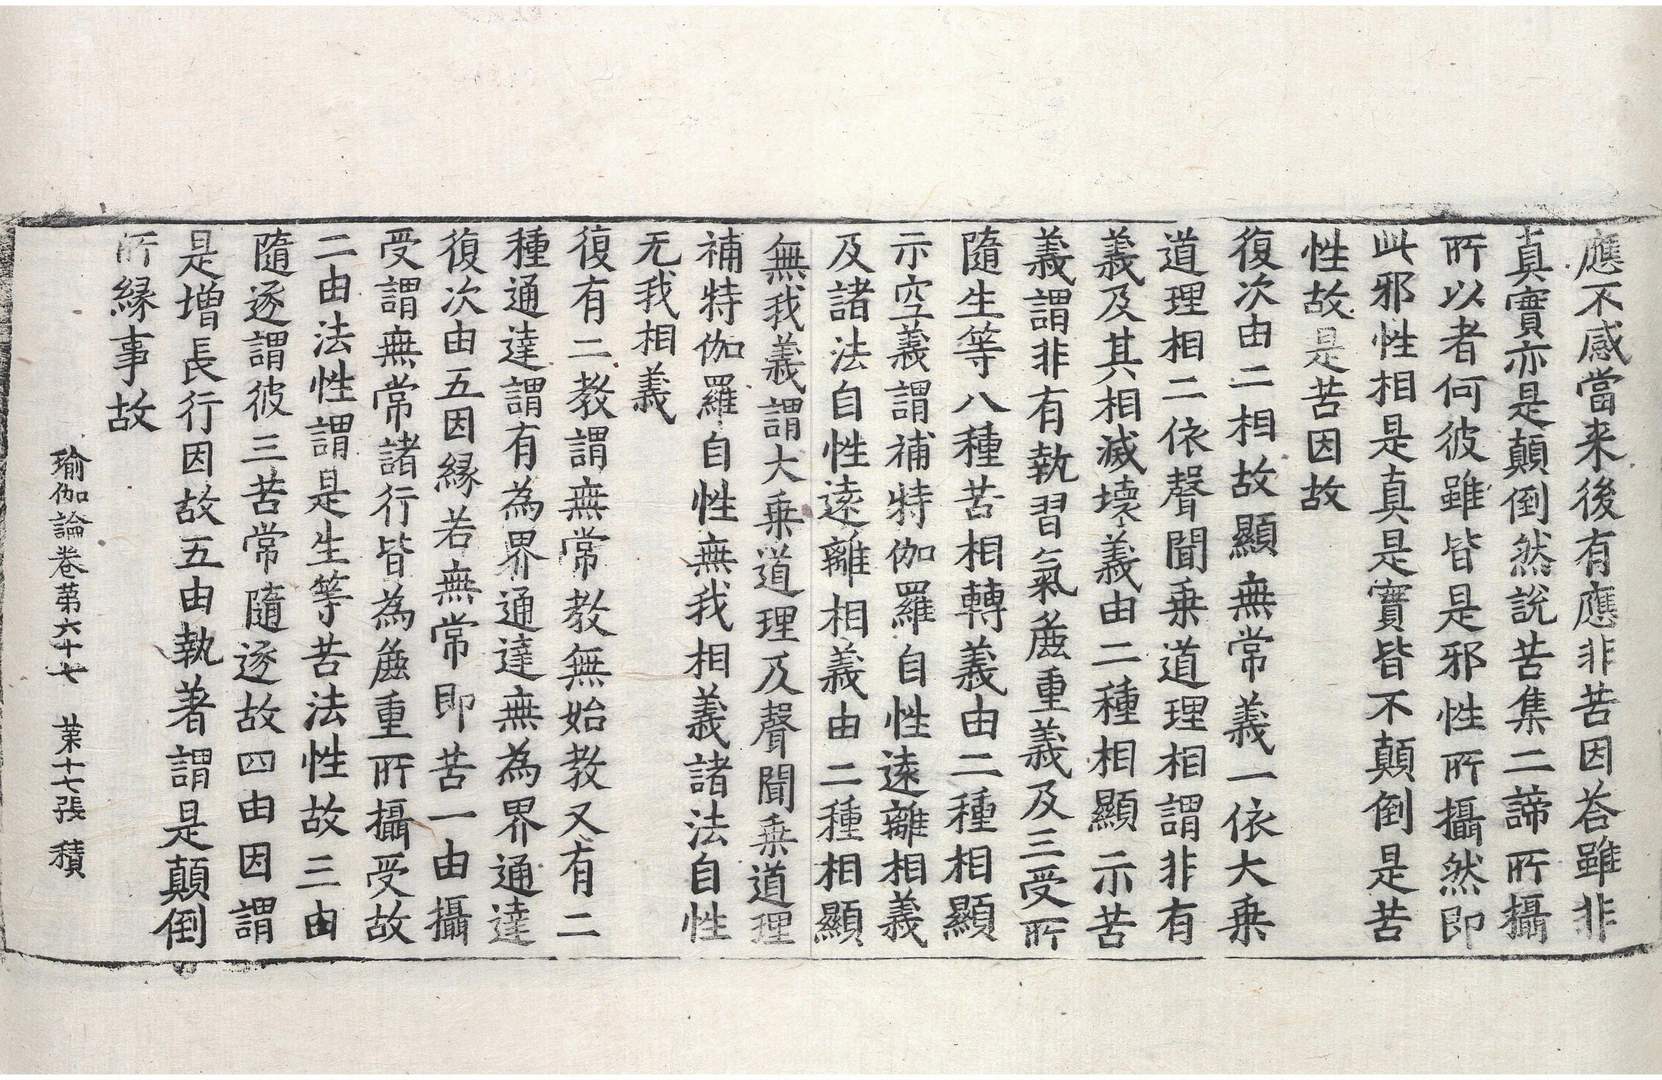 應不感當来後有應非苦因荅雖非
真實亦是顛倒然說苦集二諦所攝
所以者何彼雖皆是邪性所攝然即
此邪性相是真是實皆不顛倒是苦
性故是苦因故
復次由二相故顯無常義一依大乗
道理相二依聲聞乗道理相謂非有
義及其相滅壞義由二種相顯示苦
義謂非有執習氣麁重義及三受所
隨生等八種苦相轉義由二種相顯
示空義謂補特伽羅自性遠離相義
及諸法自性遠離相義由二種相顯
無我義謂大乗道理及聲聞乗道理
補特伽羅自性無我相義諸法自性
无我相義
復有二教謂無常教無始教又有二
種通達謂有為界通達無為界通達
復次由五因縁若無常即苦一由攝
受謂無常諸行皆為麁重所攝受故
二由法性謂是生等苦法性故三由
隨逐謂彼三苦常隨逐故四由因謂
是增長行因故五由執著謂是顛倒
所縁事故
瑜伽論卷第六十七　苐十七張　積